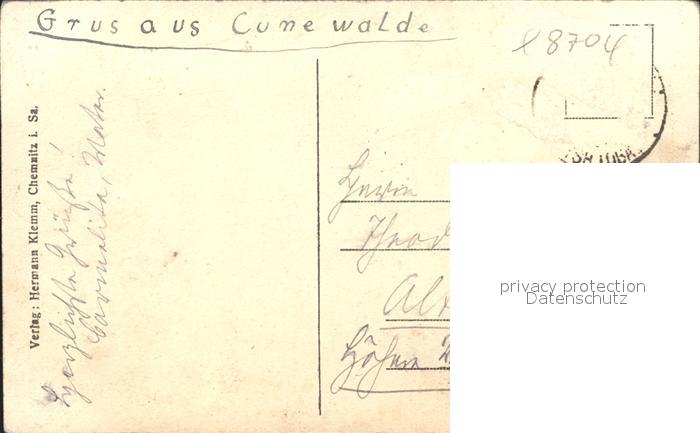 Grus aus Cunewalde
l 8704
Verlag: Hermann Klemm, Chemnitz i. Sa.
Herzlichste Grüße!
Carmelita,
Herrn
Theod
Alt
privacy protection
Datenschutz